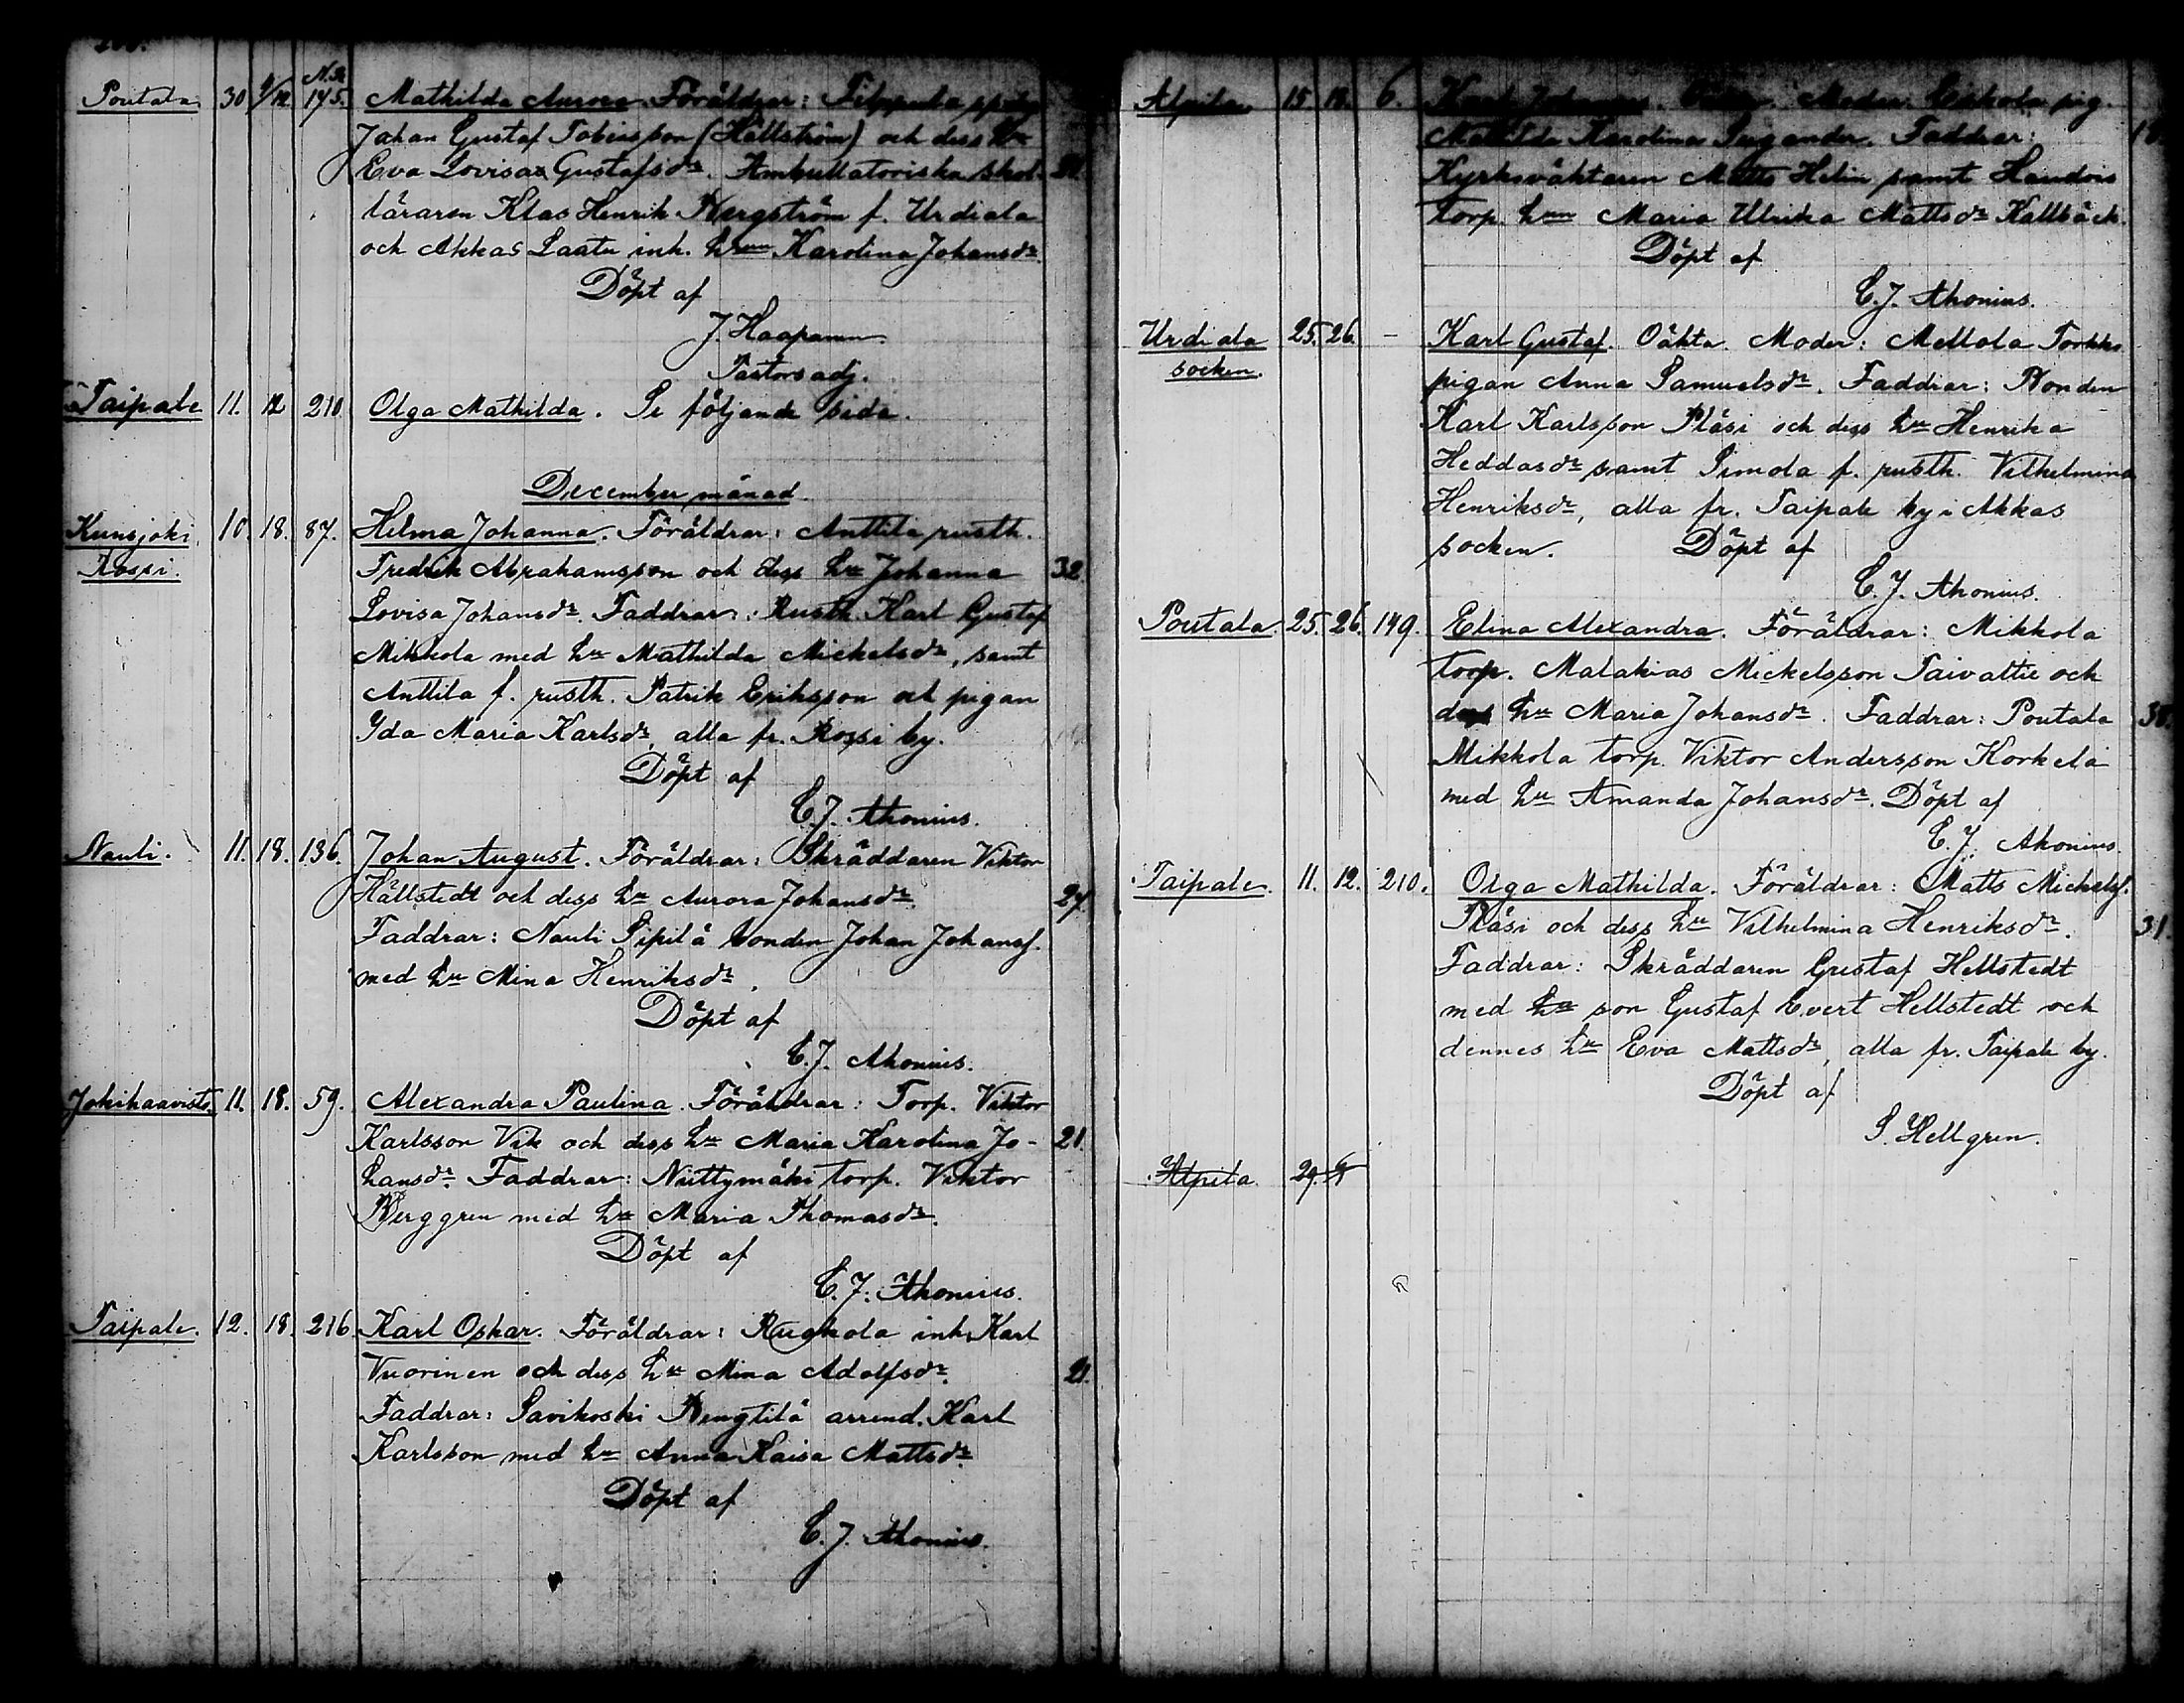 N. R.
Poutala 30 1/12 145. Mathilda Aurora. Föräldrar: Filppula
Johan Gustaf Tobiasson (Hällström) och dess Hu
Eva Lovisa Gustafsdr. Ambullatoriska skol-
läraren Klas Henrik Bergström f. Urdiala
och Akkas Laatu inh. hrun Karolina Johansdr.
Döpt af
J. Haapanen.
Pastorsadj.
Taipale 11. 12 210 Olga Mathilda. Se följande sida.
December månad.
Kunsjoki 10. 18. 87. Helma Johanna. Föräldrar: Anttila rusth.
Rossi. Fredrik Abrahamsson och dess hu Johanna 32
Lovisa Johansdr. Faddrar: Rusth. Karl Gustaf
Mikkola med hu Mathilda Mickelsdr, samt
Anttila f. rusth. Patrik Eriksson och pigan
Ida Maria Karlsdr, alla fr. Rossi by.
Döpt af
C. J. Ahonius.
Nauli. 11. 18. 136. Johan August. Föräldrar: Skräddaren Viktor
Hällstedt och dess hu Aurora Johansdr. 27
Faddrar: Nauli Pipilä bonden Johan Johansf.
med hu Mina Henriksdr.
Döpt af
C. J. Ahonius.
Jokihaavisto 11. 18. 59. Alexandra Paulina. Föräldrar: Torp. Viktor
Karlsson Vik och dess hu Maria Karolina Jo- 21.
hansdr. Faddrar: Niittymäki torp. Viktor
Berggren med hu Maria Thomasdr.
Döpt af
C. J. Ahonius.
Taipale. 12. 18. 216. Karl Oskar. Föräldrar: inh. Karl
Vuorinen och dess hu Mina Adolfsdr. 21.
Faddrar: Savikoski Bengtilä arrend. Karl
Karlsson med hu Anna Kaisa Mattsdr.
Döpt af
C. J. Ahonius.
Alpila 15 18. 6. Karl Johannes. Moder: Eskola pig.
Matilda Karolina Faddrar: 18
Kyrkoväktaren Matts Helin samt
torp. hrun Maria Ulrika Mattsdr Kallbäck.
Döpt af
C. J. Ahonius.
Urdiala 25. 26. – Karl Gustaf. Oäkta. Moder: Mellola Torkko
socken. pigan Anna Samuelsdr. Faddrar: Bonden
Karl Karlsson Pläsi och dess hu Henrika
Heddasdr samt Simola f. rusth. Vilhelmina
Henriksdr, alla fr. Taipale by i Akkas
socken. Döpt af
C. J. Ahonius.
Poutala. 25. 26. 149. Elina Alexandra. Föräldrar: Mikkola
torp. Malakias Mickelsson Taivaltie och
dess hu Maria Johansdr. Faddrar: Poutala 38.
Mikkola torp. Viktor Andersson Korkela
med hu Amanda Johansdr. Döpt af
C. J. Ahonius.
Taipale. 11. 12. 210. Olga Mathilda. Föräldrar: Matts Mickelsf.
Pläsi och dess hu Vilhelmina Henriksdr. 31.
Faddrar: Skräddaren Gustaf Hellstedt
med hu son Gustaf Evert Hellstedt och
dennes hu Eva Mattsdr, alla fr. Taipale by.
Döpt af
S. Hellgren.
Alpila 29.